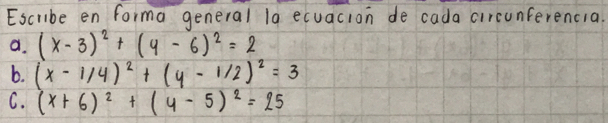 Escribe en forma general la ecuación de cada circunferencia.
a. (x - 3)² + (y - 6)² = 2
b. (x - 1/4)² + (y - 1/2)² = 3
c. (x + 6)² + (y - 5)² = 25